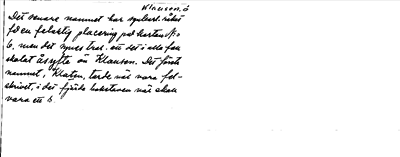 Klausen.ö
Det senare namnet har synbarl. råkat
få en felaktig placering på kartan N:o
6, men det synes trol. att det i alla fall
skolat åsyfta ön Klausen. Det förste
namnet, Klaten, torde väl vara fel-
skrivet, i det fjärde bokstaven väl skall
vara ett s.